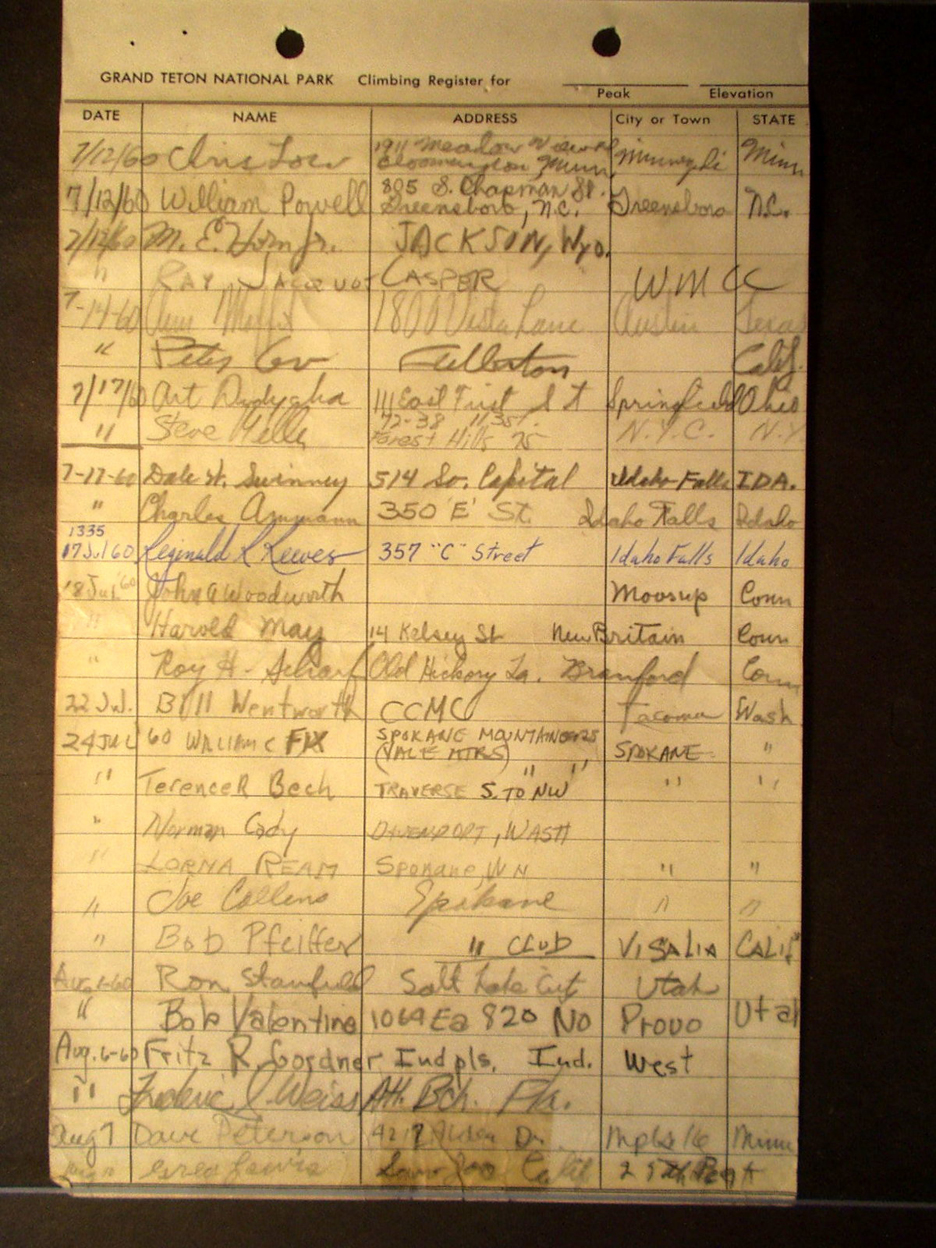 GRAND TETON NATIONAL PARK Climbing Register for
Peak Elevation
DATE NAME ADDRESS City or Town STATE
7/12/60 Chris 1911 Meadow View Rd Bloomington Minn. Minn
7/12/60 William Powell 805 S. Chapman St. Greensboro, N.C. Greensboro N.C.
7/12/60 M. E. Horn Jr. JACKSON, Wyo.
" RAY JACQUOT CASPER WMCC
7-14-60 Ann 1800 Vista Lane Austin Texas
" Peter Fullerton Calif.
7/17/60 Art 111 East First St Springfield Ohio
" Steve 72-38 113 St. Forest Hills 75 N.Y.C. N.Y
7-17-60 Dale W. Swinney 514 So. Capital Idaho Falls IDA.
" Charles Ammann 350 'E' St. Idaho Falls Idaho
1335
17 Jul 60 Reginald R Reeves 357 "C" Street Idaho Falls Idaho
18 Jul '60 John A Woodworth Moosup Conn
" Harold May 14 Kelsey St New Britain Conn
" Roy H. Scharf Old Hickory La. Branford Conn
22 Jul. Bill Wentworth CCMC Tacoma Wash
24 JUL 60 WILLIAM C FIX SPOKANE MOUNTAINEERS SPOKANE "
(VALE MTRS)
" Terence R Bech " " TRAVERSE S. TO NW " "
" Norman Cody DAVENPORT, WASH
" LORNA REAM Spokane, WN " "
" Joe Collins Spokane " "
" Bob Pfeiffer " CLUB VISALIA CALIF
Aug 6-60 Ron Stanfield Salt Lake City Utah
" Bob Valentine 1064 Ea 820 No Provo Utah
Aug. 6-60 Fritz R. Gordner Indpls, Ind. West
" Frederic J. Weiss Atl. Bch. Fla.
Aug 7 Dave Peterson 4217 Alden Dr. Mpls 16 Minn
Greg Lewis San Jose Calif